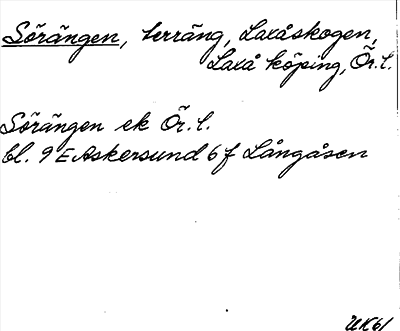 Sörängen, terräng, Laxåskogen,
Laxå köping, Ör. l.
Sörängen ek Ör. l.
bl. 9 E Askersund 6 f Långåsen
UK61